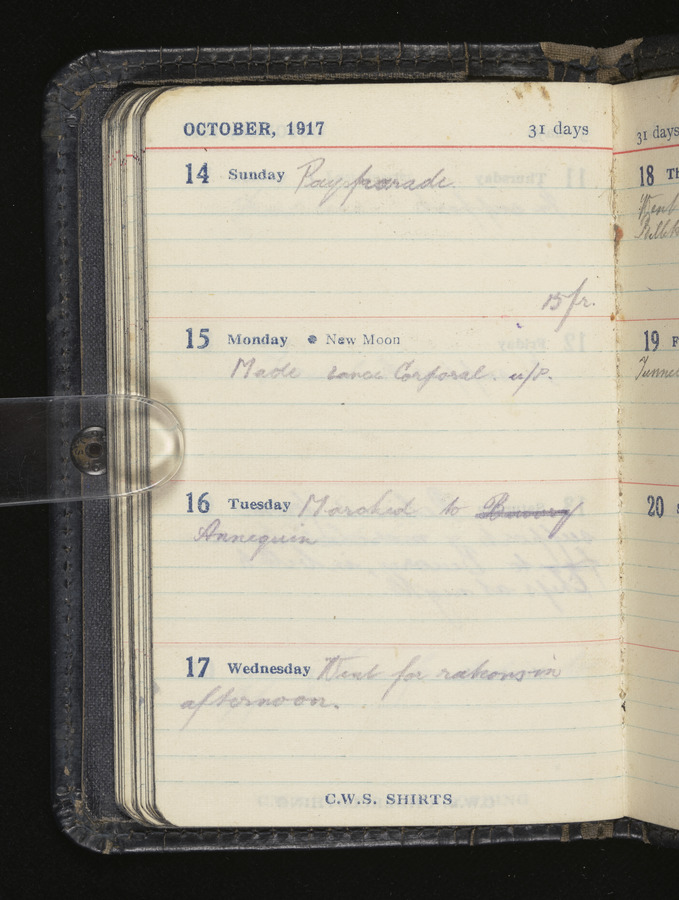 OCTOBER, 1917 31 days
14 Sunday Pay parade
15 fr.
15 Monday New Moon
Made Lance Corporal. u/p.
16 Tuesday Marched to
Annequin
17 Wednesday Went for rations in
afternoon.
C.W.S. SHIRTS
31 days
18 Th
Went
19 F
Tunne
20 S